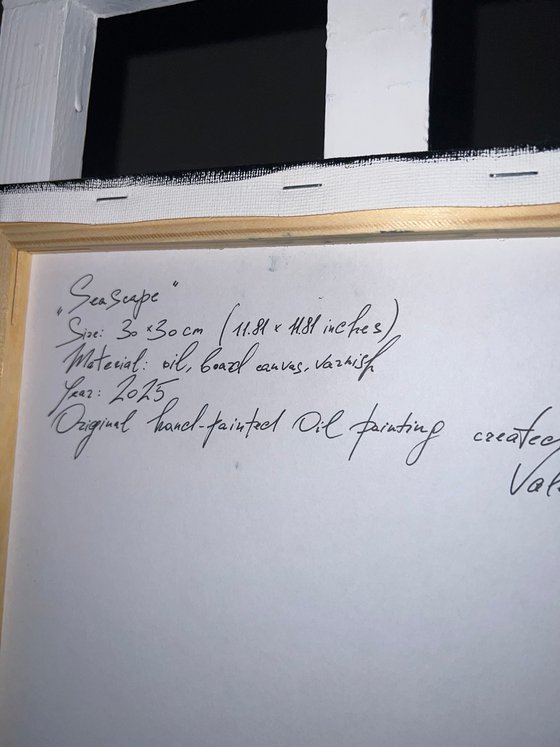 „Seascape"
Size: 30 x 30 cm (11.81 x 11.81 inches)
Material: oil, board canvas, varnish
Year: 2025
Original hand-painted Oil painting created